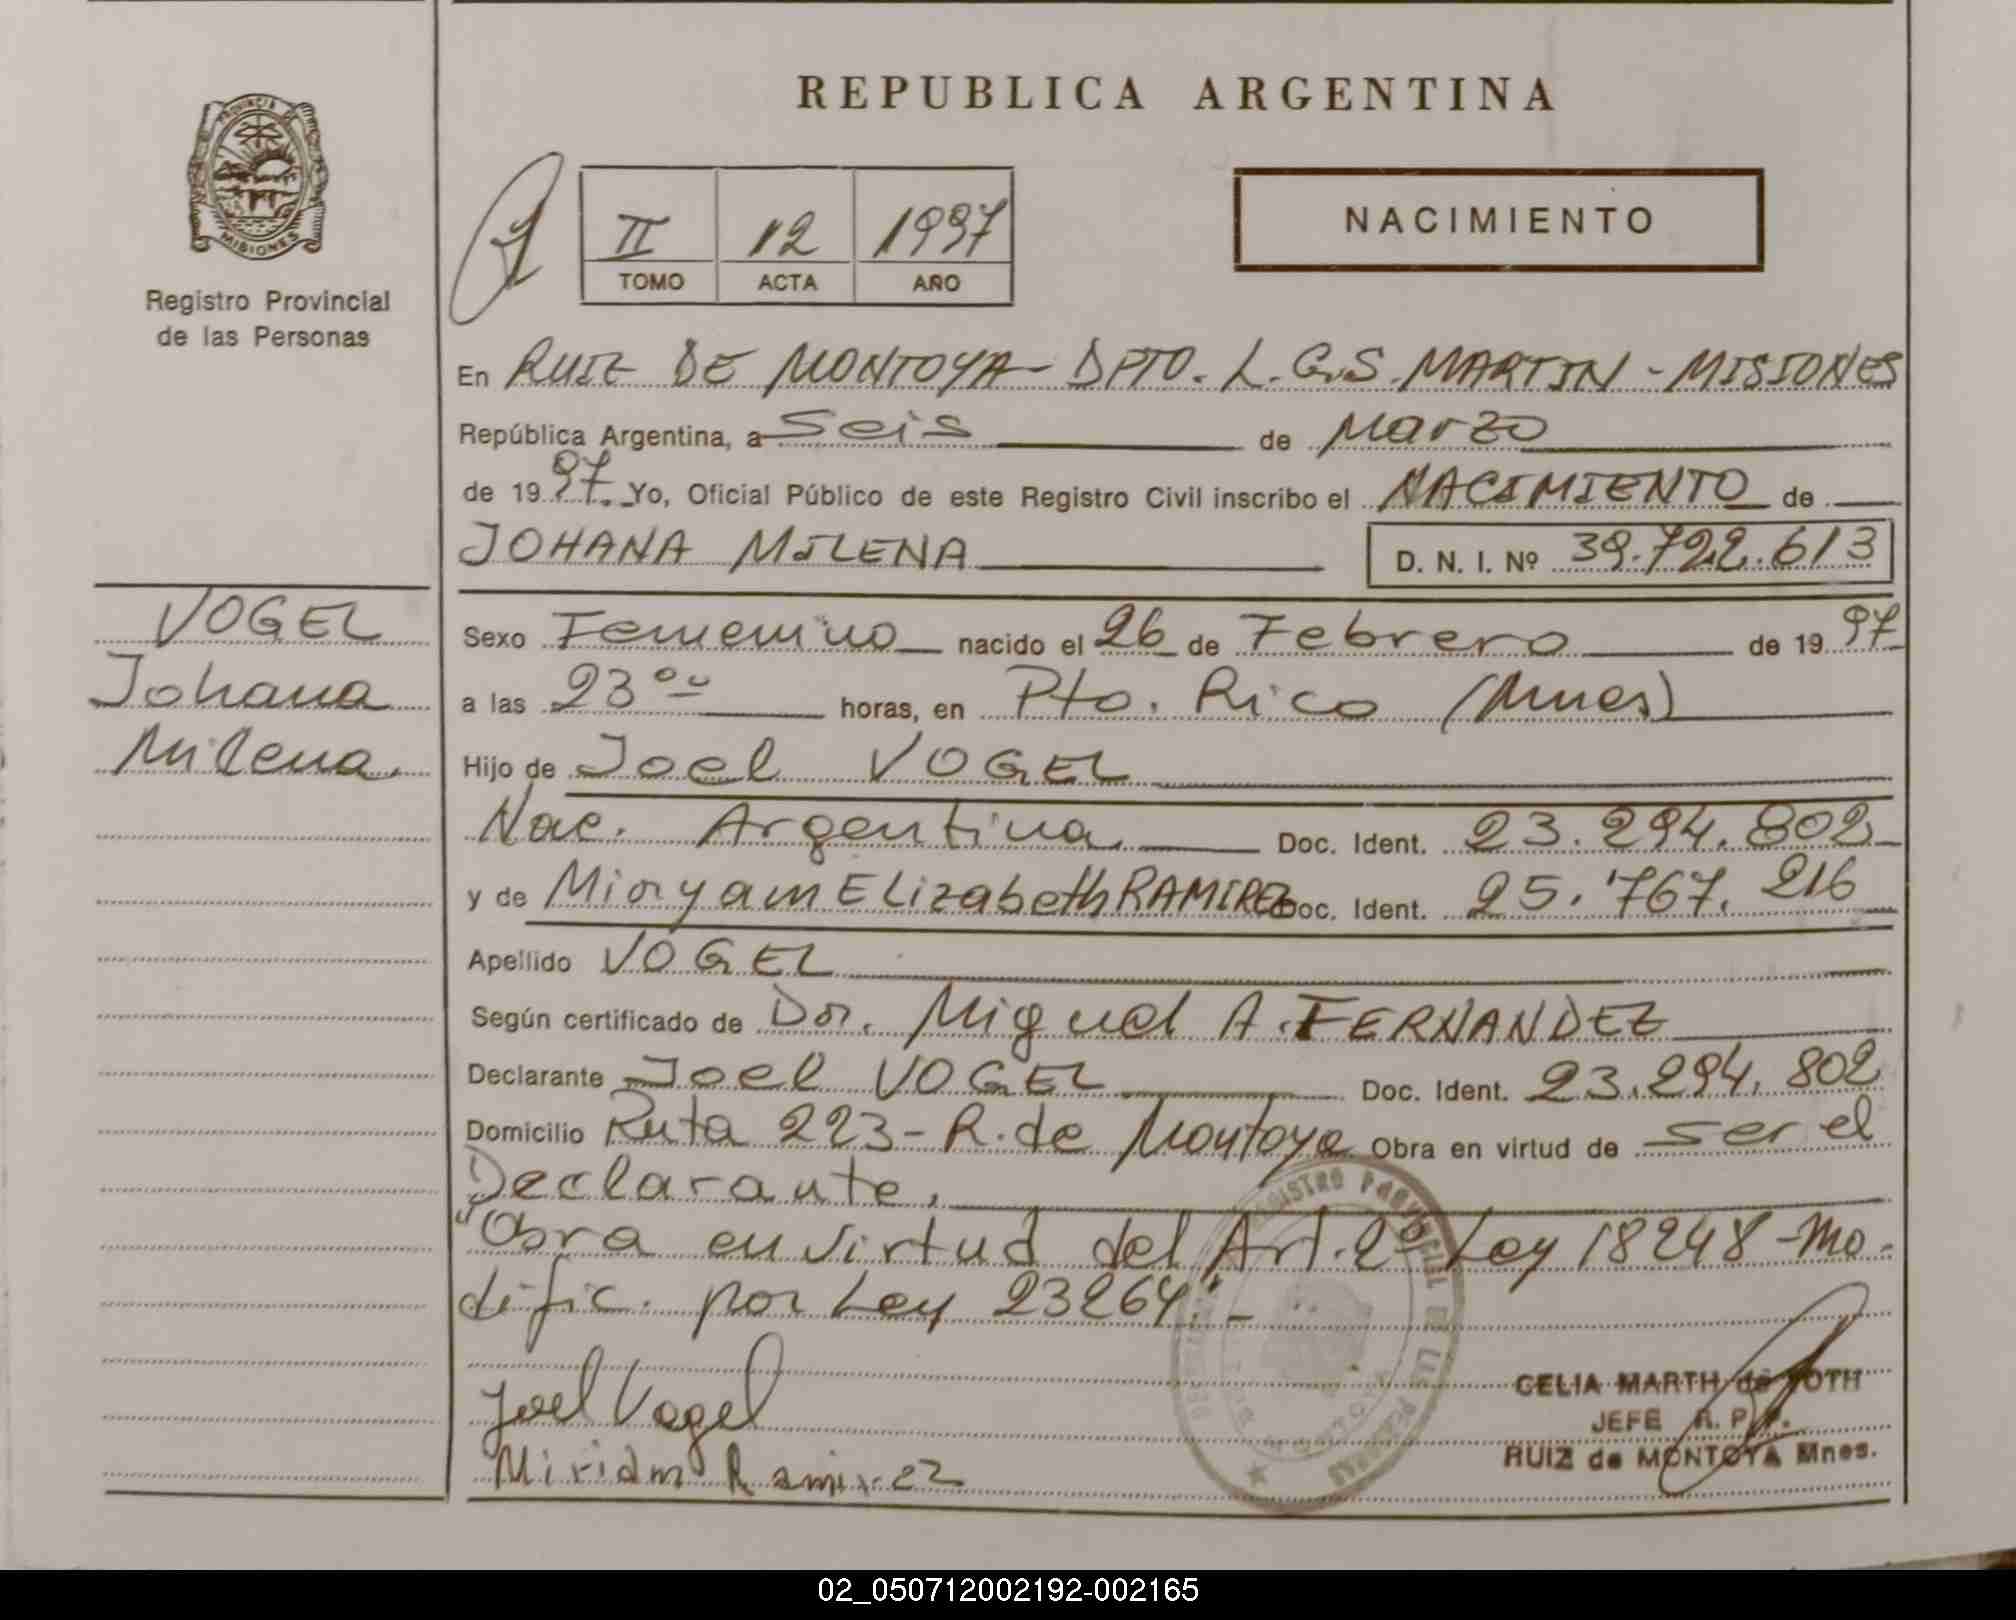 REPUBLICA ARGENTINA
PROVINCIA DE
MISIONES
Registro Provincial
de las Personas
II 12 1997
TOMO ACTA AÑO
NACIMIENTO
En RUIZ DE MONTOYA - DPTO. L.G.S. MARTIN - MISIONES
República Argentina, a Seis de Marzo
de 1997. Yo, Oficial Público de este Registro Civil inscribo el NACIMIENTO de
JOHANA MILENA D. N. I. Nº 39.722.613
VOGEL
Johana
Milena.
Sexo Femenino nacido el 26 de Febrero de 1997
a las 23 oo horas, en Pto. Rico (Mnes)
Hijo de Joel VOGEL
Nac. Argentina Doc. Ident. 23.294.802
y de Miryam ELizabeth RAMIREZ Doc. Ident. 25.767.216
Apellido VOGEL
Según certificado de Dr. Miguel A. FERNANDEZ
Declarante Joel VOGEL Doc. Ident. 23.294.802
Domicilio Ruta 223 - R. de Montoya Obra en virtud de ser el
Declarante.
"Obra en virtud del Art. 2º Ley 18248 - Mo-
dific. por Ley 23264." -
Joel Vogel
Miriam Ramirez
REGISTRO PROVINCIAL DE LAS PERSONAS
CELIA MARTH de ROTH
JEFE R. P. P.
RUIZ de MONTOYA Mnes.
02_050712002192-002165